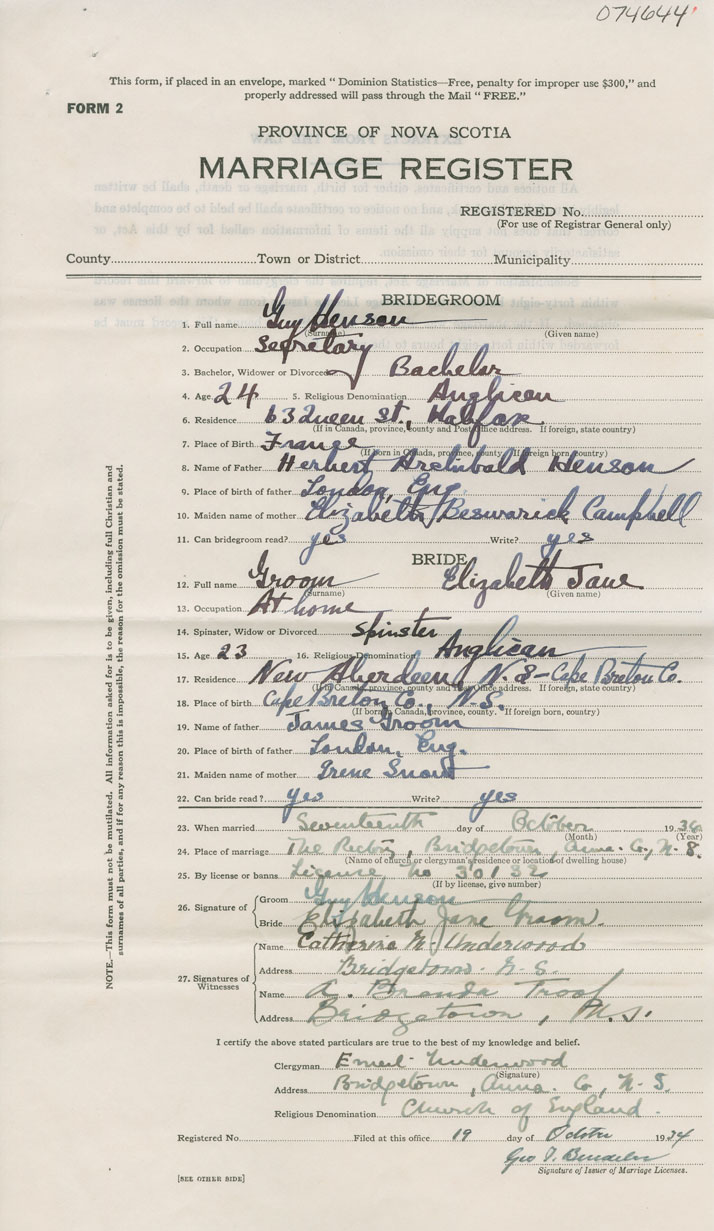 074644
This form, if placed in an envelope, marked "Dominion Statistics—Free, penalty for improper use $300," and
properly addressed will pass through the Mail "FREE."
FORM 2
PROVINCE OF NOVA SCOTIA
MARRIAGE REGISTER
REGISTERED No.
(For use of Registrar General only)
County Town or District Municipality
BRIDEGROOM
1. Full name Guy Henson
(Surname) (Given name)
2. Occupation Secretary
3. Bachelor, Widower or Divorced Bachelor
4. Age 24 5. Religious Denomination Anglican
6. Residence 63 Queen St., Halifax
(If in Canada, province, county and Post Office address. If foreign, state country)
7. Place of Birth France
(If born in Canada, province, county. If foreign born, country)
8. Name of Father Herbert Archibald Henson
9. Place of birth of father London, Eng.
10. Maiden name of mother Elizabeth Beswarick Campbell
11. Can bridegroom read? yes Write? yes
BRIDE
12. Full name Groom Elizabeth Jane
(Surname) (Given name)
13. Occupation At home
14. Spinster, Widow or Divorced Spinster
15. Age 23 16. Religious Denomination Anglican
17. Residence New Aberdeen, N.S-Cape Breton Co.
(If in Canada, province, county and Post Office address. If foreign, state country)
18. Place of birth Cape Breton Co., N.S.
(If born in Canada, province, county. If foreign born, country)
19. Name of father James Groom
20. Place of birth of father London, Eng.
21. Maiden name of mother Irene
22. Can bride read? yes Write? yes
23. When married Seventeenth day of October 19
(Month) (Year)
24. Place of marriage The Rectory, Bridgetown, Anna. Co., N.S.
(Name of church or clergyman's residence or location of dwelling house)
25. By license or banns License No 30132
(If by license, give number)
26. Signature of
Groom Guy Henson
Bride Elizabeth Jane Groom.
27. Signatures of
Witnesses
Name Catherine Underwood
Address Bridgetown. N.S.
Name A. Troop
Address Bridgetown, N.S.
I certify the above stated particulars are true to the best of my knowledge and belief.
Clergyman Underwood
(Signature)
Address Bridgetown, Anna. Co, N.S.
Religious Denomination Church of England.
Registered No. Filed at this office 19 day of October 1934
Geo
Signature of Issuer of Marriage Licenses.
[SEE OTHER SIDE]
NOTE.—This form must not be mutilated. All information asked for is to be given, including full Christian and
surnames of all parties, and if for any reason this is impossible, the reason for the omission must be stated.